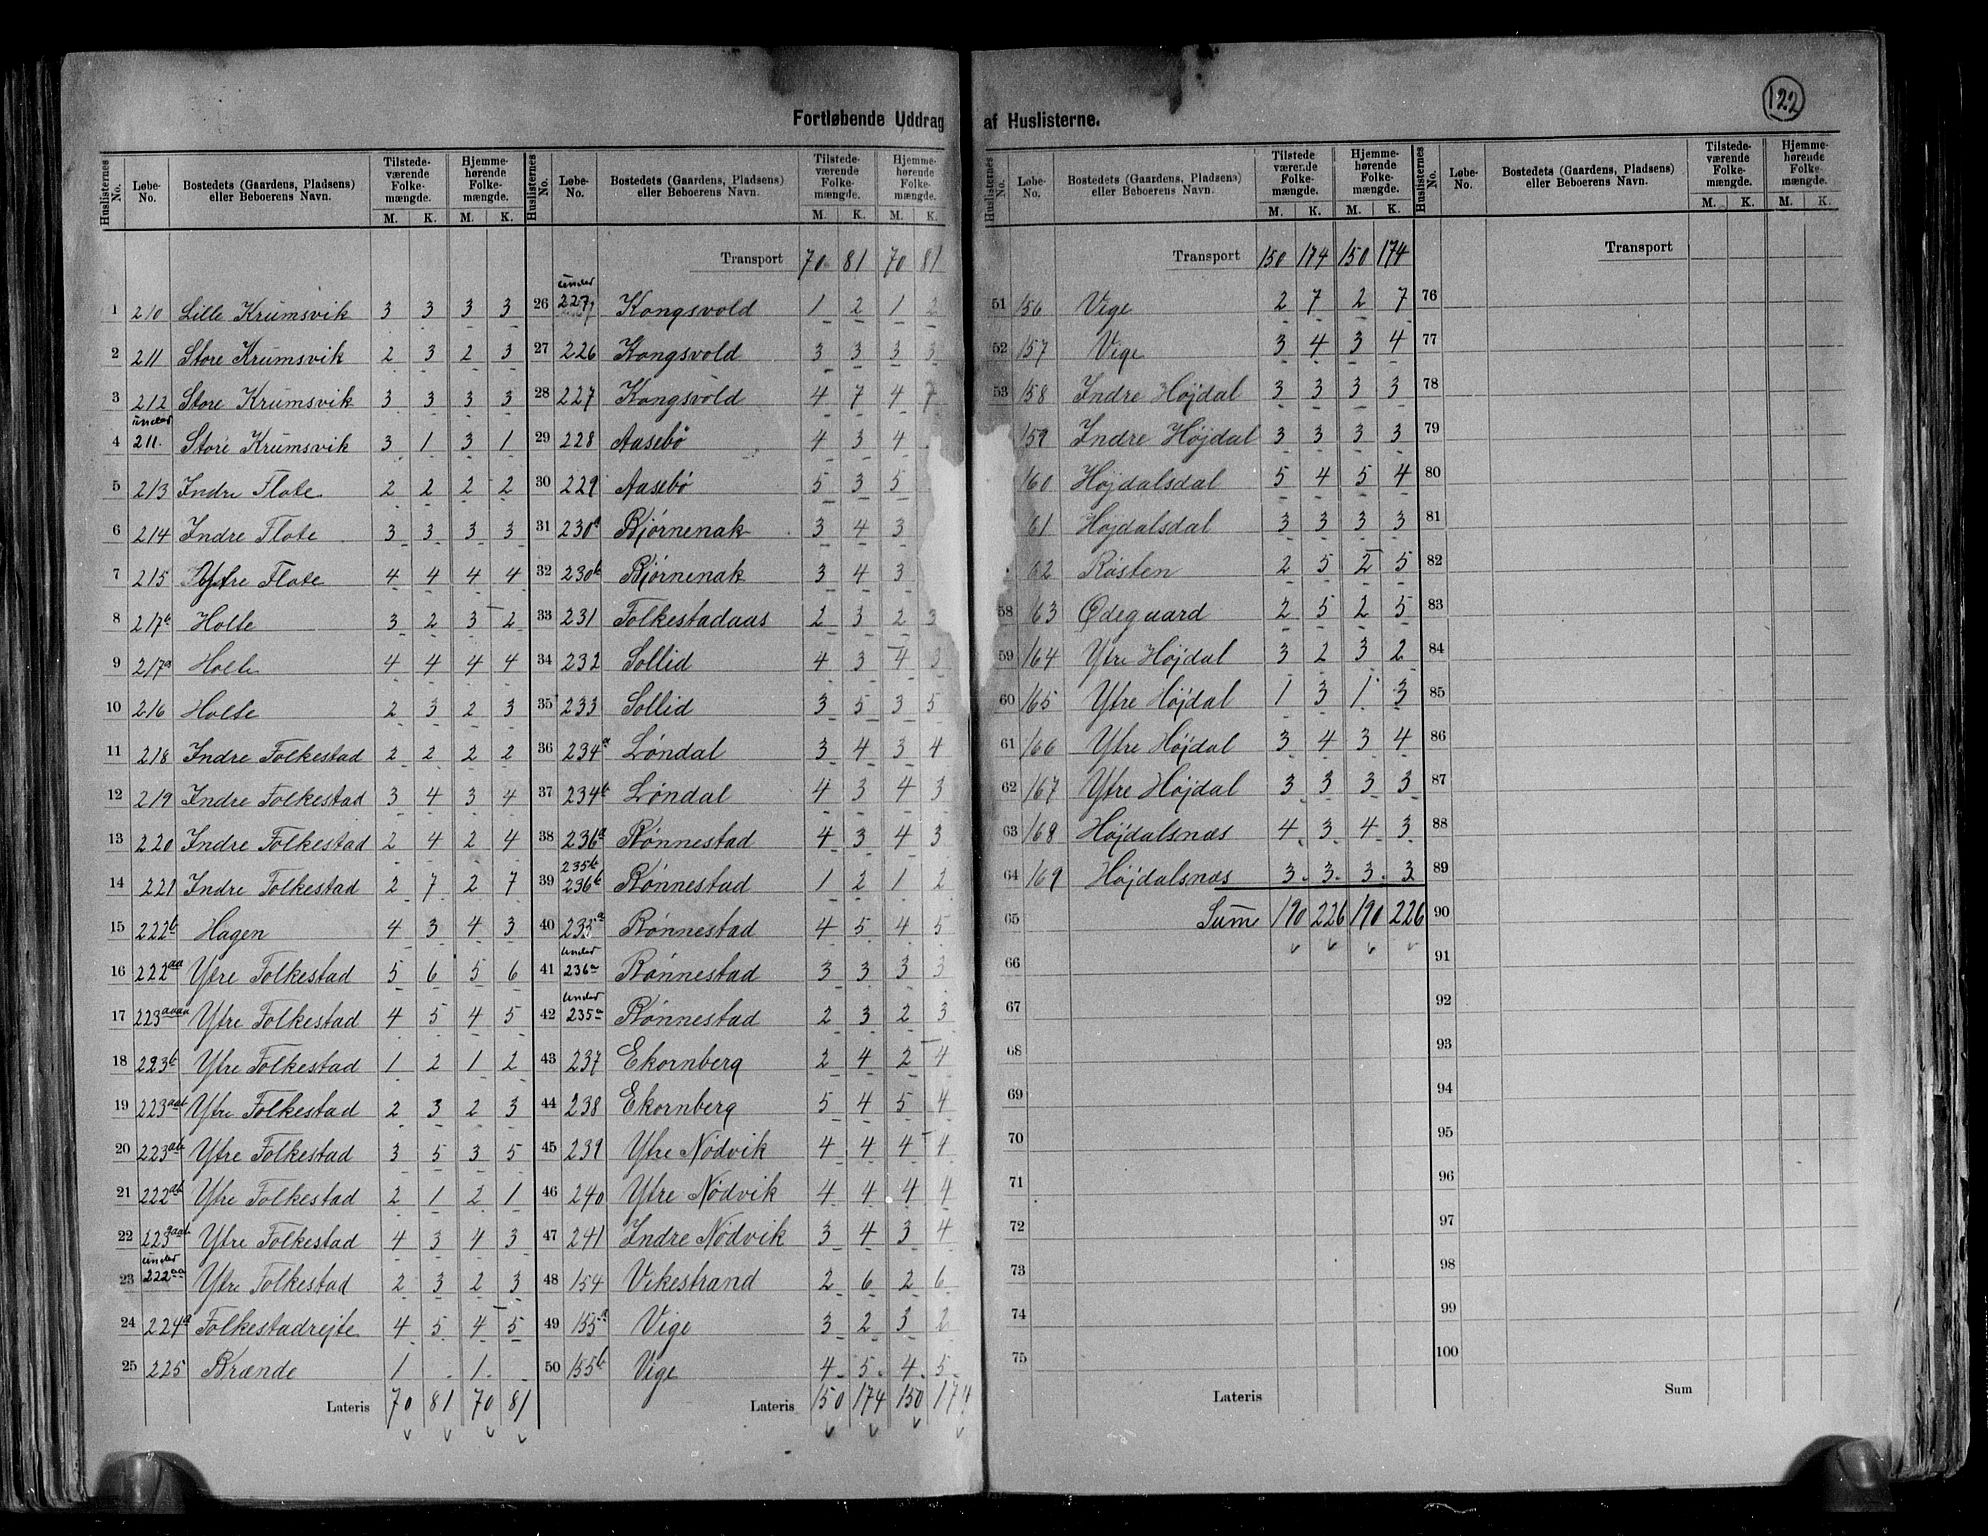 122
Fortløbende Uddrag af Huslisterne.
Huslisternes No. | Løbe-No. | Bostedets (Gaardens, Pladsens) eller Beboerens Navn. | Tilstedeværende Folkemængde. M. K. | Hjemmehørende Folkemængde. M. K.
1 210 Lille Krumsvik 3 3 3 3
2 211 Store Krumsvik 2 3 2 3
3 212 Store Krumsvik 3 3 3 3
4 under 211. Store Krumsvik 3 1 3 1
5 213 Indre Flote 2 2 2 2
6 214 Indre Flote 3 3 3 3
7 215 Ytre Flote 4 4 4 4
8 217b Holte 3 2 3 2
9 217a Holte 4 4 4 4
10 216 Holte 2 3 2 3
11 218 Indre Folkestad 2 2 2 2
12 219 Indre Folkestad 3 4 3 4
13 220 Indre Folkestad 2 4 2 4
14 221 Indre Folkestad 2 7 2 7
15 222b Hagen 4 3 4 3
16 222aa Ytre Folkestad 5 6 5 6
17 223aaaa Ytre Folkestad 4 5 4 5
18 223b Ytre Folkestad 1 2 1 2
19 223aab Ytre Folkestad 2 3 2 3
20 223ab Ytre Folkestad 3 5 3 5
21 222ab Ytre Folkestad 2 1 2 1
22 223aaab Ytre Folkestad 4 3 4 3
23 under 222aa Ytre Folkestad 2 3 2 3
24 224a Folkestadrejte 4 5 4 5
25 225 Brænde 1 . 1 .
Lateris 70 81 70 81
Huslisternes No. | Løbe-No. | Bostedets (Gaardens, Pladsens) eller Beboerens Navn. | Tilstedeværende Folkemængde. M. K. | Hjemmehørende Folkemængde. M. K.
Transport 70 81 70 81
26 under 227 Kongsvold 1 2 1 2
27 226 Kongsvold 3 3 3 3
28 227 Kongsvold 4 7 4 7
29 228 Aasebø 4 3 4
30 229 Aasebø 5 3 5
31 230a Bjørnenak 3 4 3
32 230b Bjørnenak 3 4 3
33 231 Folkestadaas 2 3 2 3
34 232 Sollid 4 3 4 3
35 233 Sollid 3 5 3 5
36 234a Løndal 3 4 3 4
37 234b Løndal 4 3 4 3
38 236a Rønnestad 4 3 4 3
39 235b 236b Rønnestad 1 2 1 2
40 235a Rønnestad 4 5 4 5
41 under 236a Rønnestad 3 3 3 3
42 under 235a Rønnestad 2 3 2 3
43 237 Ekornberg 2 4 2 4
44 238 Ekornberg 5 4 5 4
45 239 Ytre Nødvik 4 4 4 4
46 240 Ytre Nødvik 4 4 4 4
47 241 Indre Nødvik 3 4 3 4
48 154 Vikestrand 2 6 2 6
49 155a Vige 3 2 3 2
50 155b Vige 4 5 4 5
Lateris 150 174 150 174
Huslisternes No. | Løbe-No. | Bostedets (Gaardens, Pladsens) eller Beboerens Navn. | Tilstedeværende Folkemængde. M. K. | Hjemmehørende Folkemængde. M. K.
Transport 150 174 150 174
51 156 Vige 2 7 2 7
52 157 Vige 3 4 3 4
53 158 Indre Højdal 3 3 3 3
159 Indre Højdal 3 3 3 3
160 Højdalsdal 5 4 5 4
61 Højdalsdal 3 3 3 3
62 Røsten 2 5 2 5
58 63 Ødegaard 2 5 2 5
59 164 Ytre Højdal 3 2 3 2
60 165 Ytre Højdal 1 3 1 3
61 166 Ytre Højdal 3 4 3 4
62 167 Ytre Højdal 3 3 3 3
63 168 Højdalsnæs 4 3 4 3
64 169 Højdalsnæs 3 3 3 3
65 Sum 190 226 190 226
66
67
68
69
70
71
72
73
74
75
Lateris
Huslisternes No. | Løbe-No. | Bostedets (Gaardens, Pladsens) eller Beboerens Navn. | Tilstedeværende Folkemængde. M. K. | Hjemmehørende Folkemængde. M. K.
Transport
76
77
78
79
80
81
82
83
84
85
86
87
88
89
90
91
92
93
94
95
96
97
98
99
100
Sum